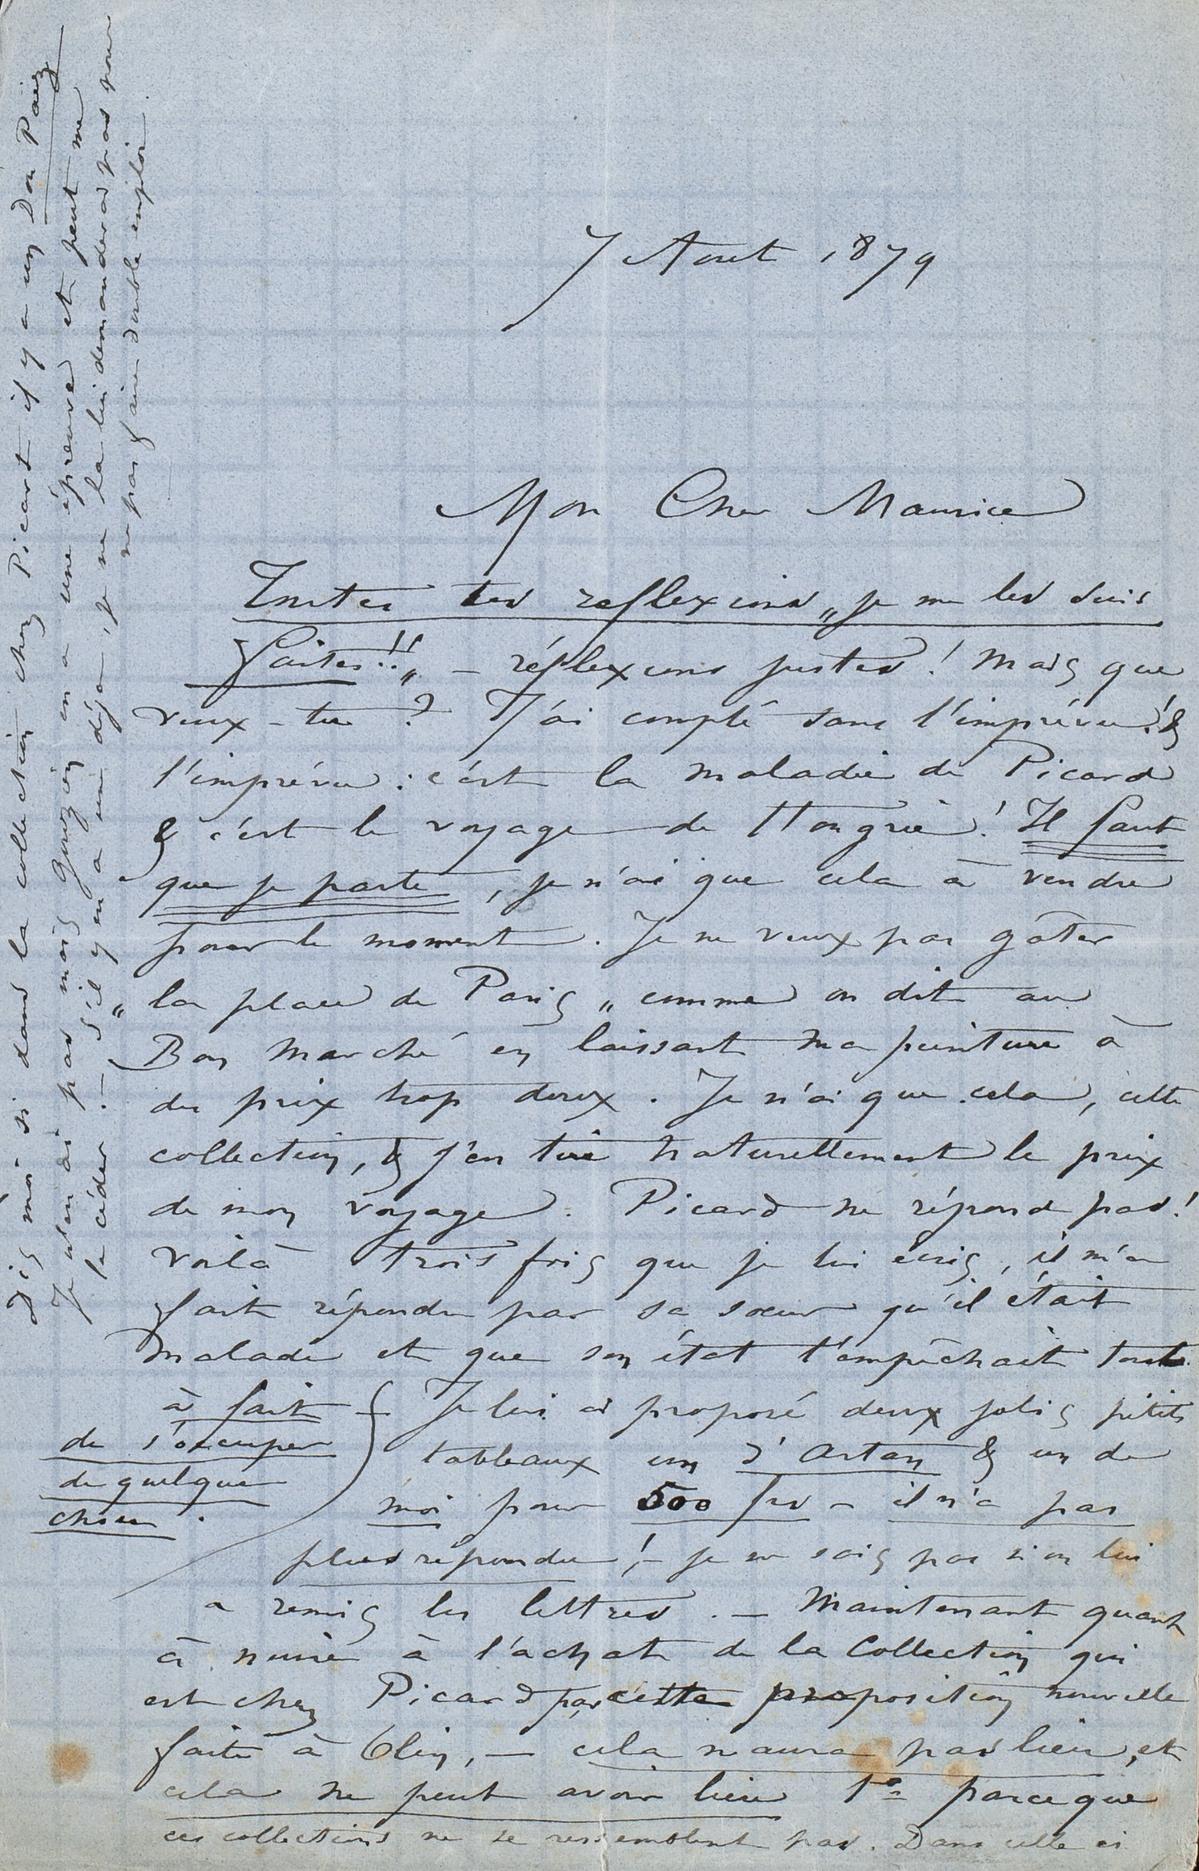 7 Aout 1879
Mon Cher Maurice
Toutes tes reflexions „je me les suis
faites!!„ – réflexions justes! Mais que
veux-tu? J'ai compté sans l'imprévu! &
l'imprévu: c'est la maladie de Picard
& c'est le voyage de Hongrie! Il faut
que je parte, je n'ai que cela à vendre
pour le moment. Je ne veux pas gâter
„la place de Paris„ comme on dit au
Bon Marché en laissant ma peinture à
des prix trop doux. Je n'ai que cela, cette
collection, & j'en tire naturellement le prix
de mon voyage. Picard ne répond pas!
Voilà trois fois que je lui écris, il m'a
fait répondre par sa sœur qu'il était
malade et que son état l'empêchait tout
à fait
de s'occuper
de quelque
chose.
Je lui ai proposé deux jolis petits
tableaux un d'Artan & un de
moi pour 500 frs – il n'a pas
plus répondu! – je ne sais pas si on lui
a remis les lettres. – Maintenant quant
à nuire à l'achat de la Collection qui
est chez Picard par cette proposition nouvelle
faite à Olin, – cela n'aura pas lieu, et
cela ne peut avoir lieu 1o parceque
ces collections ne se ressemblent pas. Dans celle ci
Dis moi si dans la collection chez Picart il y a un Don Paëz
Je n'en ai pas mais Gouzien en a une épreuve et peut me
le céder. – S'il y en a un déjà, je ne la lui demanderai pas pour
ne pas faire double emploi.